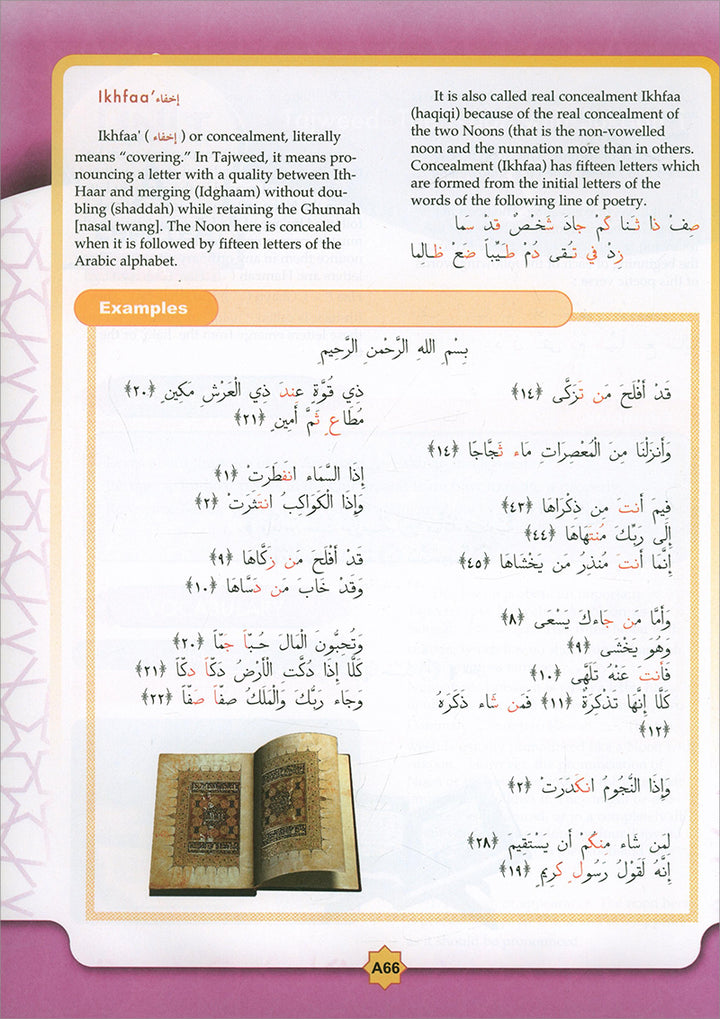 Ikhfaa’ إخفاء
Ikhfaa' ( إخفاء ) or concealment, literally
means “covering.” In Tajweed, it means pro-
nouncing a letter with a quality between Ith-
Haar and merging (Idghaam) without dou-
bling (shaddah) while retaining the Ghunnah
[nasal twang]. The Noon here is concealed
when it is followed by fifteen letters of the
Arabic alphabet.
It is also called real concealment Ikhfaa
(haqiqi) because of the real concealment of
the two Noons (that is the non-vowelled
noon and the nunnation more than in others.
Concealment (Ikhfaa) has fifteen letters which
are formed from the initial letters of the
words of the following line of poetry.
صِفْ ذا ثَـنا كَمْ جادَ شَخْـصٌ قَدْ سَما
زِدْ في تُـقى دُمْ طَـيِّباً ضَعْ ظَـالِما
Examples
بِسْمِ اللهِ الرَّحْمنِ الرَّحِيمِ
قَدْ أَفْلَحَ مَن تَزَكَّى ﴿١٤﴾
وَأَنزَلْنَا مِنَ الْمُعْصِرَاتِ مَاء ثَجَّاجًا ﴿١٤﴾
فِيمَ أَنتَ مِن ذِكْرَاهَا ﴿٤٣﴾
إِلَى رَبِّكَ مُنتَهَاهَا ﴿٤٤﴾
إِنَّمَا أَنتَ مُنذِرُ مَن يَخْشَاهَا ﴿٤٥﴾
وَأَمَّا مَن جَاءكَ يَسْعَى ﴿٨﴾
وَهُوَ يَخْشَى ﴿٩﴾
فَأَنتَ عَنْهُ تَلَهَّى ﴿١٠﴾
كَلَّا إِنَّهَا تَذْكِرَةٌ ﴿١١﴾ فَمَن شَاء ذَكَرَهُ
﴿١٢﴾
وَإِذَا النُّجُومُ انكَدَرَتْ ﴿٢﴾
لِمَن شَاء مِنكُمْ أَن يَسْتَقِيمَ ﴿٢٨﴾
إِنَّهُ لَقَوْلُ رَسُولٍ كَرِيمٍ ﴿١٩﴾
ذِي قُوَّةٍ عِندَ ذِي الْعَرْشِ مَكِينٍ ﴿٢٠﴾
مُطَاعٍ ثَمَّ أَمِينٍ ﴿٢١﴾
إِذَا السَّمَاء انفَطَرَتْ ﴿١﴾
وَإِذَا الْكَوَاكِبُ انتَثَرَتْ ﴿٢﴾
قَدْ أَفْلَحَ مَن زَكَّاهَا ﴿٩﴾
وَقَدْ خَابَ مَن دَسَّاهَا ﴿١٠﴾
وَتُحِبُّونَ الْمَالَ حُبّاً جَمّاً ﴿٢٠﴾
كَلَّا إِذَا دُكَّتِ الْأَرْضُ دَكّاً دَكّاً ﴿٢١﴾
وَجَاء رَبُّكَ وَالْمَلَكُ صَفّاً صَفّاً ﴿٢٢﴾
A66